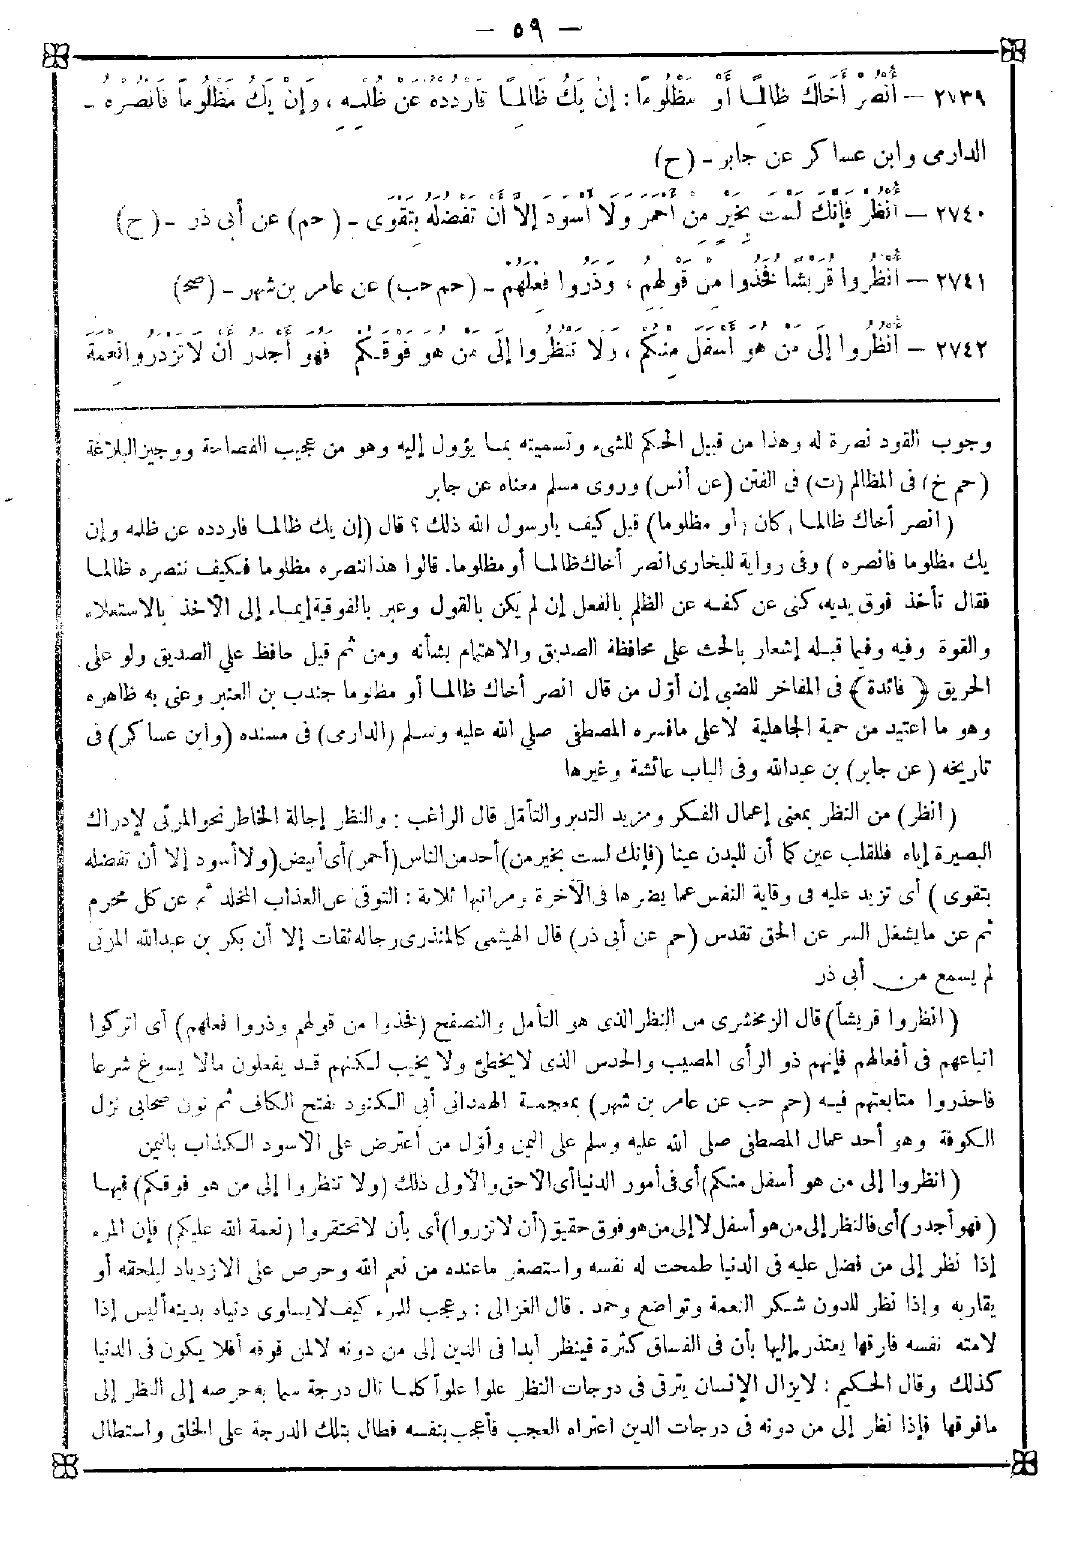 — ٥٩ —
٢٧٣٩ — أُنْصُرْ أَخَاكَ ظَالِمًا أَوْ مَظْلُومًا: إِنْ يَكُ ظَالِمًا فَارْدُدْهُ عَنْ ظُلْمِهِ، وَإِنْ يَكُ مَظْلُومًا فَانْصُرْهُ -
الدارمى وابن عساكر عن جابر - (ح)
٢٧٤٠ — أُنْظُرْ فَإِنَّكَ لَسْتَ بِخَيْرٍ مِنْ أَحْمَرَ وَلَا أَسْوَدَ إِلَّا أَنْ تَفْضُلَهُ بِتَقْوَى - (حم) عن أبى ذر - (ح)
٢٧٤١ — أُنْظُرُوا قُرَيْشًا فَخُذُوا مِنْ قَوْلِهِمْ، وَذَرُوا فِعْلَهُمْ - (حم حب) عن عامر بن شهر - (صح)
٢٧٤٢ — أُنْظُرُوا إِلَى مَنْ هُوَ أَسْفَلَ مِنْكُمْ، وَلَا تَنْظُرُوا إِلَى مَنْ هُوَ فَوْقَكُمْ فَهُوَ أَجْدَرُ أَنْ لَا تَزْدَرُوا نِعْمَةَ
وجوب القود نصرة له وهذا من قبيل الحكم للشىء وتسميته بما يؤول إليه وهو من عجيب الفصاحة ووجيز البلاغة
(حم خ) فى المظالم (ت) فى الفتن (عن أنس) وروى مسلم معناه عن جابر
(انصر أخاك ظالما) كان (أو مظلوما) قيل كيف يارسول الله ذلك؟ قال (إن يك ظالما فاردده عن ظلمه وإن
يك مظلوما فانصره) وفى رواية للبخارى انصر أخاك ظالما أو مظلوما. قالوا هذا ننصره مظلوما فكيف ننصره ظالما
فقال تأخذ فوق يديه، كنى عن كفه عن الظلم بالفعل إن لم يكن بالقول وعبر بالفوقية إيماء إلى الأخذ بالاستعلاء
والقوة وفيه وفيما قبله إشعار بالحث على محافظة الصديق والاهتمام بشأنه ومن ثم قيل حافظ على الصديق ولو على
الحريق ﴿فائدة﴾ فى المفاخر للضبى إن أول من قال انصر أخاك ظالما أو مظلوما جندب بن العنبر وعنى به ظاهره
وهو ما اعتيد من حمية الجاهلية لا على مافسره المصطفى صلى الله عليه وسلم (الدارمى) فى مسنده (وابن عساكر) فى
تاريخه (عن جابر) بن عبدالله وفى الباب عائشة وغيرها
(انظر) من النظر بمعنى إعمال الفكر ومزيد التدبر والتأمل قال الراغب: والنظر إجالة الخاطر نحو المرئى لإدراك
البصيرة إياه فللقلب عين كما أن للبدن عينا (فإنك لست بخير من) أحد من الناس (أحمر) أى أبيض (ولا أسود إلا أن تفضله
بتقوى) أى تزيد عليه فى وقاية النفس عما يضرها فى الآخرة ومراتبها ثلاثة: التوقى عن العذاب المخلد ثم عن كل محرم
ثم عن مايشغل السر عن الحق تقدس (حم عن أبى ذر) قال الهيثمى كالمنذرى رجاله ثقات إلا أن بكر بن عبدالله المزنى
لم يسمع من أبى ذر
(انظروا قريشا) قال الزمخشرى من النظر الذى هو التأمل والتصفح (فخذوا من قولهم وذروا فعلهم) أى اتركوا
اتباعهم فى أفعالهم فإنهم ذو الرأى المصيب والحدس الذى لايخطئ ولا يخيب لكنهم قد يفعلون مالا يسوغ شرعا
فاحذروا متابعتهم فيه (حم حب عن عامر بن شهر) بمعجمة الهمدانى أبى الكنود بفتح الكاف ثم نون صحابى نزل
الكوفة وهو أحد عمال المصطفى صلى الله عليه وسلم على اليمن وأول من اعترض على الأسود الكذاب باليمن
(انظروا إلى من هو أسفل منكم) أى فى أمور الدنيا أى الأحق والأولى ذلك (ولا تنظروا إلى من هو فوقكم) فيها
(فهو أجدر) أى فالنظر إلى من هو أسفل لا إلى من هو فوق حقيق (أن لاتزروا) أى بأن لاتحتقروا (نعمة الله عليكم) فإن المرء
إذا نظر إلى من فضل عليه فى الدنيا طمحت له نفسه واستصغر ماعنده من نعم الله وحرص على الازدياد ليلحقه أو
يقاربه وإذا نظر للدون شكر النعمة وتواضع وحمد. قال الغزالى: وعجب المرء كيف لايساوى دنياه بدينه أليس إذا
لامته نفسه فارقها يعتذر إليها بأن فى الفساق كثرة فينظر أبدا فى الدين إلى من دونه لالمن فوقه أفلا يكون فى الدنيا
كذلك وقال الحكيم: لايزال الإنسان يترقى فى درجات النظر علوا علوا كلما نال درجة سما به حرصه إلى النظر إلى
مافوقها فإذا نظر إلى من دونه فى درجات الدين اعتراه العجب فأعجب بنفسه فطال بتلك الدرجة على الخلق واستطال